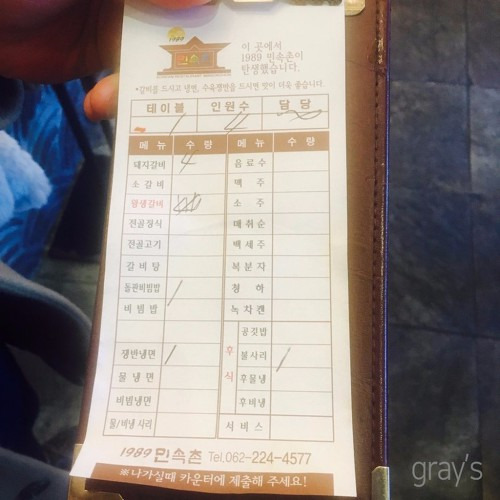 1989
민속촌
이 곳에서
1989 민속촌이
탄생했습니다.
*갈비를 드시고 냉면, 수육쟁반을 드시면 맛이 더욱 좋습니다.
테이블 인원수 담당
1 4
메뉴 수량 메뉴 수량
돼지갈비 4 음료수
소갈비 맥주
왕생갈비 소주
전골정식 매취순
전골고기 백세주
갈비탕 복분자
돌판비빔밥 / 청하
비빔밥 녹차캔
공깃밥
쟁반냉면 / 후식 물사리 /
물냉면 후물냉
비빔냉면 후비냉
물/비냉 사리 서비스
1989 민속촌 Tel.062-224-4577
※나가실때 카운터에 제출해 주세요!
gray's